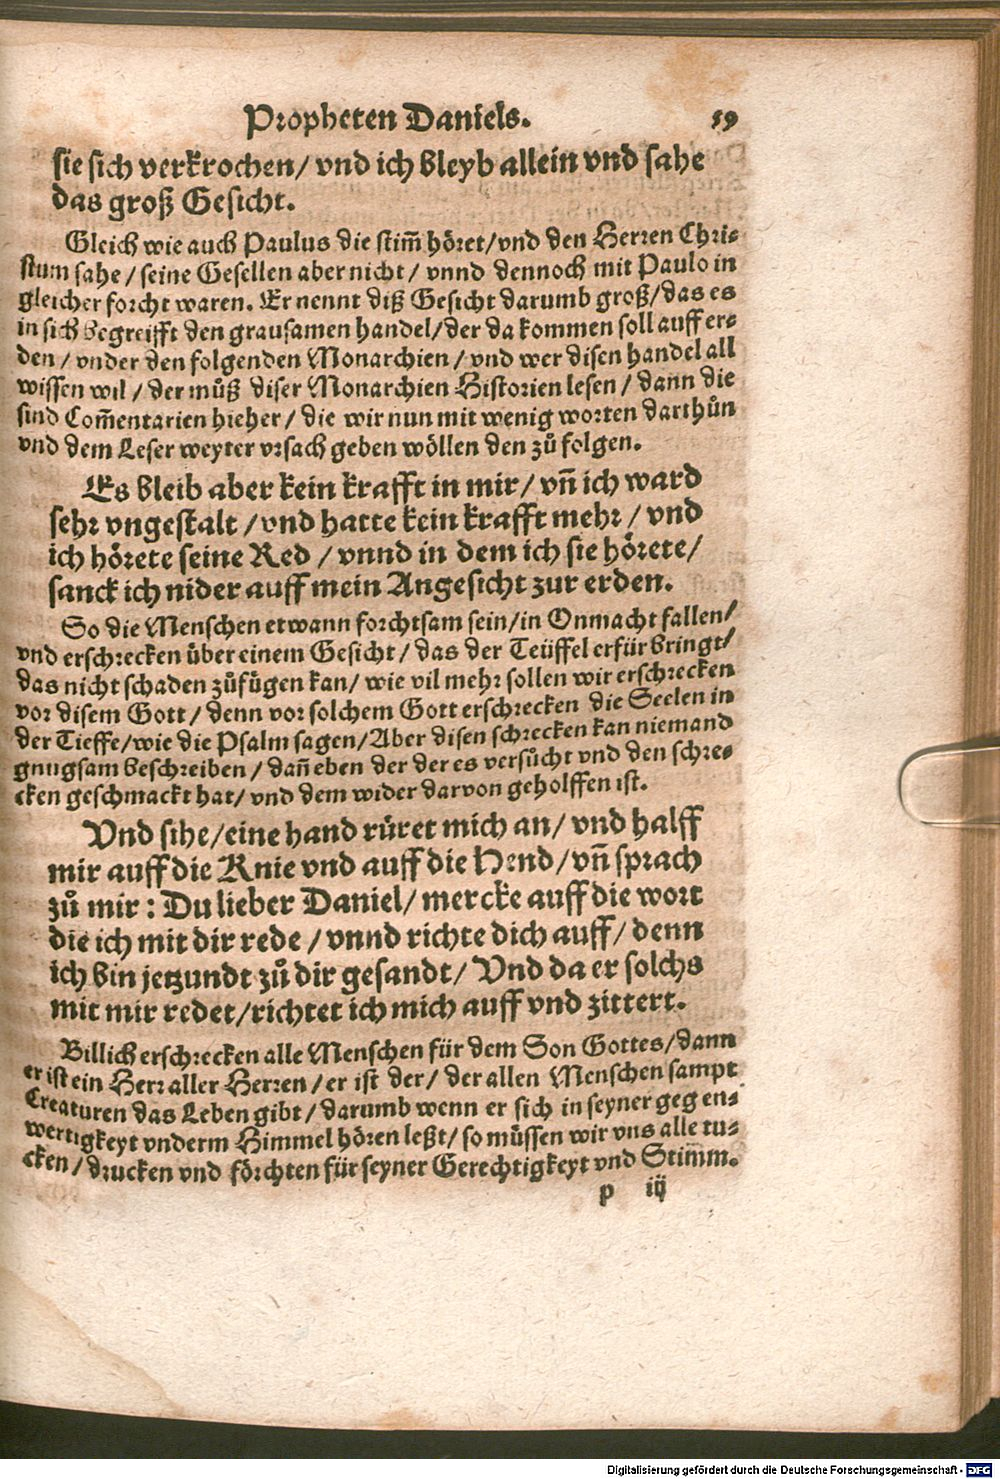 Propheten Daniels. 59
sie sich verkrochen/ vnd ich bleyb allein vnd sahe
das groß Gesicht.
Gleich wie auch Paulus die stim̄ höret/vnd den Herren Chri-
stum sahe/ seine Gesellen aber nicht/ vnnd dennoch mit Paulo in
gleicher forcht waren. Er nennt diß Gesicht darumb groß/das es
in sich begreifft den grausamen handel/der da kommen soll auff er-
den/ vnder den folgenden Monarchien/ vnd wer disen handel all
wissen wil/ der můß diser Monarchien Historien lesen/ dann die
sind Com̄entarien hieher/ die wir nun mit wenig worten darthůn
vnd dem Leser weyter vrsach geben wöllen den zů folgen.
Es bleib aber kein krafft in mir/ vn̄ ich ward
sehr vngestalt/vnd hatte kein krafft mehr/ vnd
ich hörete seine Red/ vnnd in dem ich sie hörete/
sanck ich nider auff mein Angesicht zur erden.
So die Menschen etwann forchtsam sein/in Onmacht fallen/
vnd erschrecken über einem Gesicht/ das der Teüffel erfür bringt/
das nicht schaden zůfügen kan/ wie vil mehr sollen wir erschrecken
vor disem Gott/ denn vor solchem Gott erschrecken die Seelen in
der Tieffe/wie die Psalm sagen/Aber disen schrecken kan niemand
gnugsam beschreiben/ dan̄ eben der der es versůcht vnd den schre-
cken geschmackt hat/ vnd dem wider darvon geholffen ist.
Vnd sihe/eine hand rüret mich an/ vnd halff
mir auff die Knie vnd auff die Hend/vn̄ sprach
zů mir: Du lieber Daniel/ mercke auff die wort
die ich mit dir rede/ vnnd richte dich auff/ denn
ich bin jetzundt zů dir gesandt/ Vnd da er solchs
mit mir redet/richtet ich mich auff vnd zittert.
Billich erschrecken alle Menschen für dem Son Gottes/dann
er ist ein Herr aller Herren/er ist der/ der allen Menschen sampt
Creaturen das Leben gibt/ darumb wenn er sich in seyner gegen-
wertigkeyt vnderm Himmel hören leßt/ so müssen wir vns alle tu-
cken/ drucken vnd förchten für seyner Gerechtigkeyt vnd Stimm.
p iij
Digitalisierung gefördert durch die Deutsche Forschungsgemeinschaft - DFG